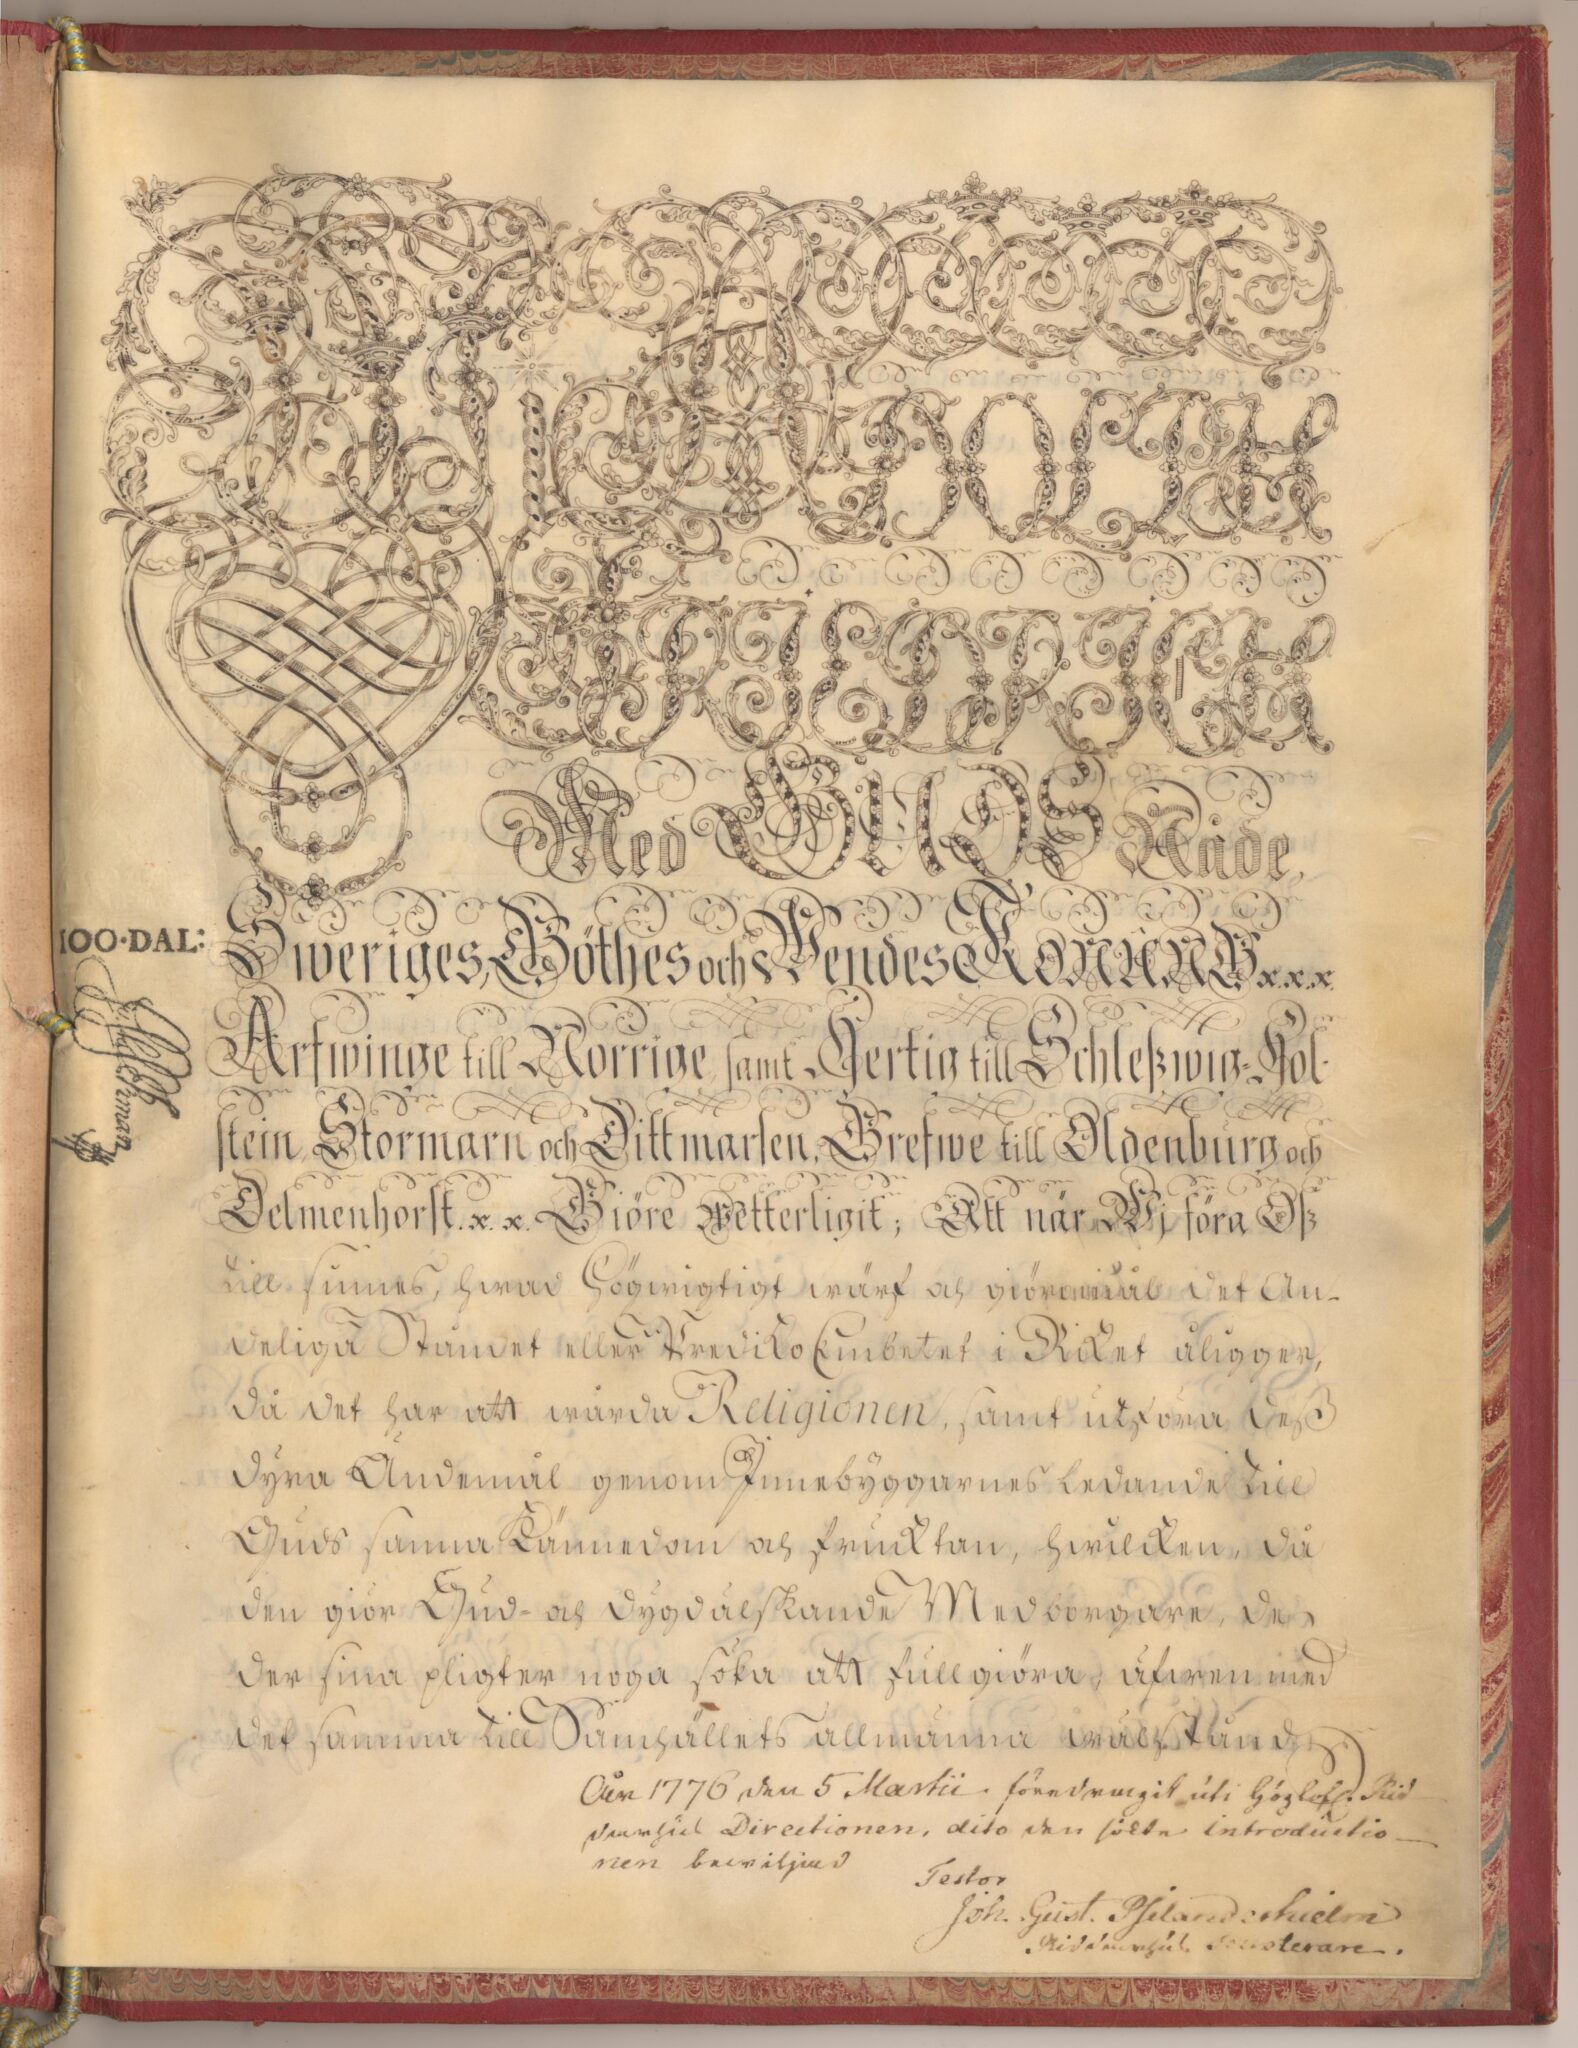 Wi ADOLPH
FRIEDRICH
Med GUDS Nåde,
100·DAL:
Sweriges, Göthes och Wendes KONUNG x.x.x.
Arfwinge till Norrige, samt Hertig till Schleßwig-Hol-
stein, Stormarn och Dittmarsen, Grefwe till Oldenburg och
Delmenhorst. x. x. Giöre wetterligit; Att när Wj föra Oß
till sinnes, hwad högwigtigt wärf och giöromål det An-
deliga Ståndet eller Prediko Embetet i Riket åligger,
då det har att wårda Religionen, samt utföra deß
dyra Ändemål genom Innebyggarnes ledande till
Guds sanna Kännedom och fruktan, hwilcken, då
den giör Gud- och dygdälskande Medborgare, de
der sina pligter noga söka att fullgiöra, äfwen med
det samma till Samhällets allmänna wälstånd
År 1776 den 5 Martii föredragit uti Höglofl. Rid-
darhus Directionen, dito den sökte introductio-
nen bewiljad
Testor
Joh. Gust. Psilanderhielm
Riddarhus Secreterare.